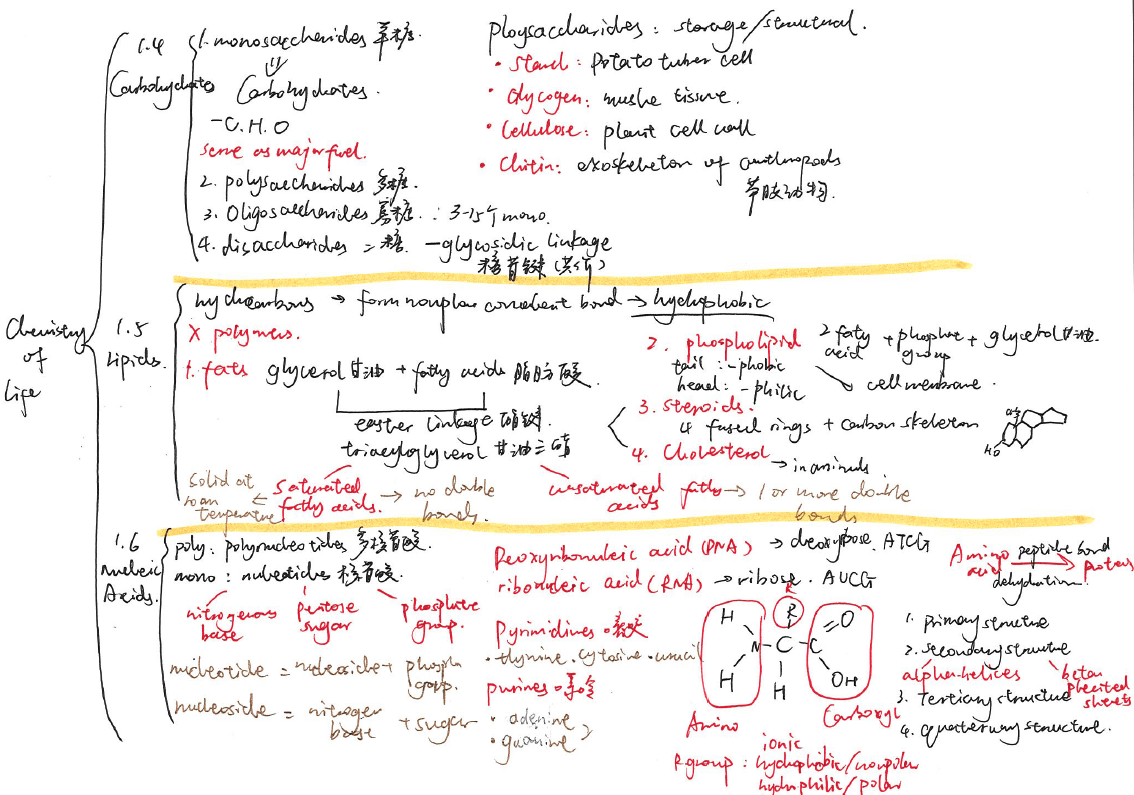 Chemistry
of
Life
1.4
Carbohydrates
1. monosaccharides 单糖
Carbohydrates.
- C.H.O
serve as major fuel.
2. polysaccharides 多糖.
3. Oligosaccharides 寡糖 : 3-15个mono.
4. disaccharides 二糖. - glycosidic linkage
糖苷键(共价)
Ploysaccharides : storage/structural.
• Starch : potato tuber cell
• Glycogen : muslve tissue.
• Cellulose : plant cell wall
• Chitin : exoskeleton of arthropods
节肢动物.
1.5
Lipids.
hydrocarbons → form nonploar convalent bond → hydrophobic
X polymers.
1. fats glycerol 甘油 + fatty acids 脂肪酸.
easter linkage 酯键.
triacyloglycerol 甘油三酯
saturated
fatty acids.
solid at
room
temperature
→ no double
bonds.
unsaturated fatty
acids
→ 1 or more double
bonds
2. phospholipid
2 fatty
acid
+ phosphate
group
+ glycerol 甘油
tail : -phobic
head : -philic
cell membrane.
3. Steroids.
4 fused rings + carbon skeleton
4. Cholesterol
→ in animals.
CH3
HO
1.6
nucleic
Acids.
poly : polynucleotides 多核苷酸.
mono : nucleotides 核苷酸.
nitrogenous
base
pentose
sugar
phosphate
group.
nucleotide = nucleoside + phosph
group.
nucleoside = nitrogen
base
+ sugar
Deoxyribonucleic acid (DNA) → deoxyribose. ATCG
ribonucleic acid (RNA) → ribose. AUCG
Pyrimidines • 嘧啶
• thymine. cytosine. uracil
purines • 嘌呤
• adenine
• guanine
R
H
R
O
H N C C
H
H
OH
Amino
Carboxyl
R group : ionic
hydrophobic/nonpolar
hydrophilic/polar
Amino
acid
peptide bond
dehydration
proteins
1. primary structure
2. secondary structure
alpha-helices
beta
pleated
sheets
3. Tertiary structure
4. quaternary structure.